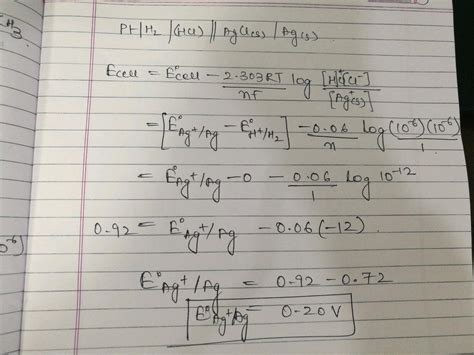 H
3.
Pt|H₂|(HCl)||AgCl(s)|Ag(s).
Ecell = E°cell - 2.303RT/nF log [H⁺][Cl⁻]/[Ag⁺(s)]
= [E°Ag⁺/Ag - E°H⁺/H₂] - 0.06/n log (10⁻⁶)(10⁻⁶)/1
= E°Ag⁺/Ag - 0 - 0.06/1 log 10⁻¹²
0.92 = E°Ag⁺/Ag - 0.06(-12)
0⁻⁶)
E°Ag⁺/Ag = 0.92 - 0.72
E°Ag⁺/Ag = 0.20 V